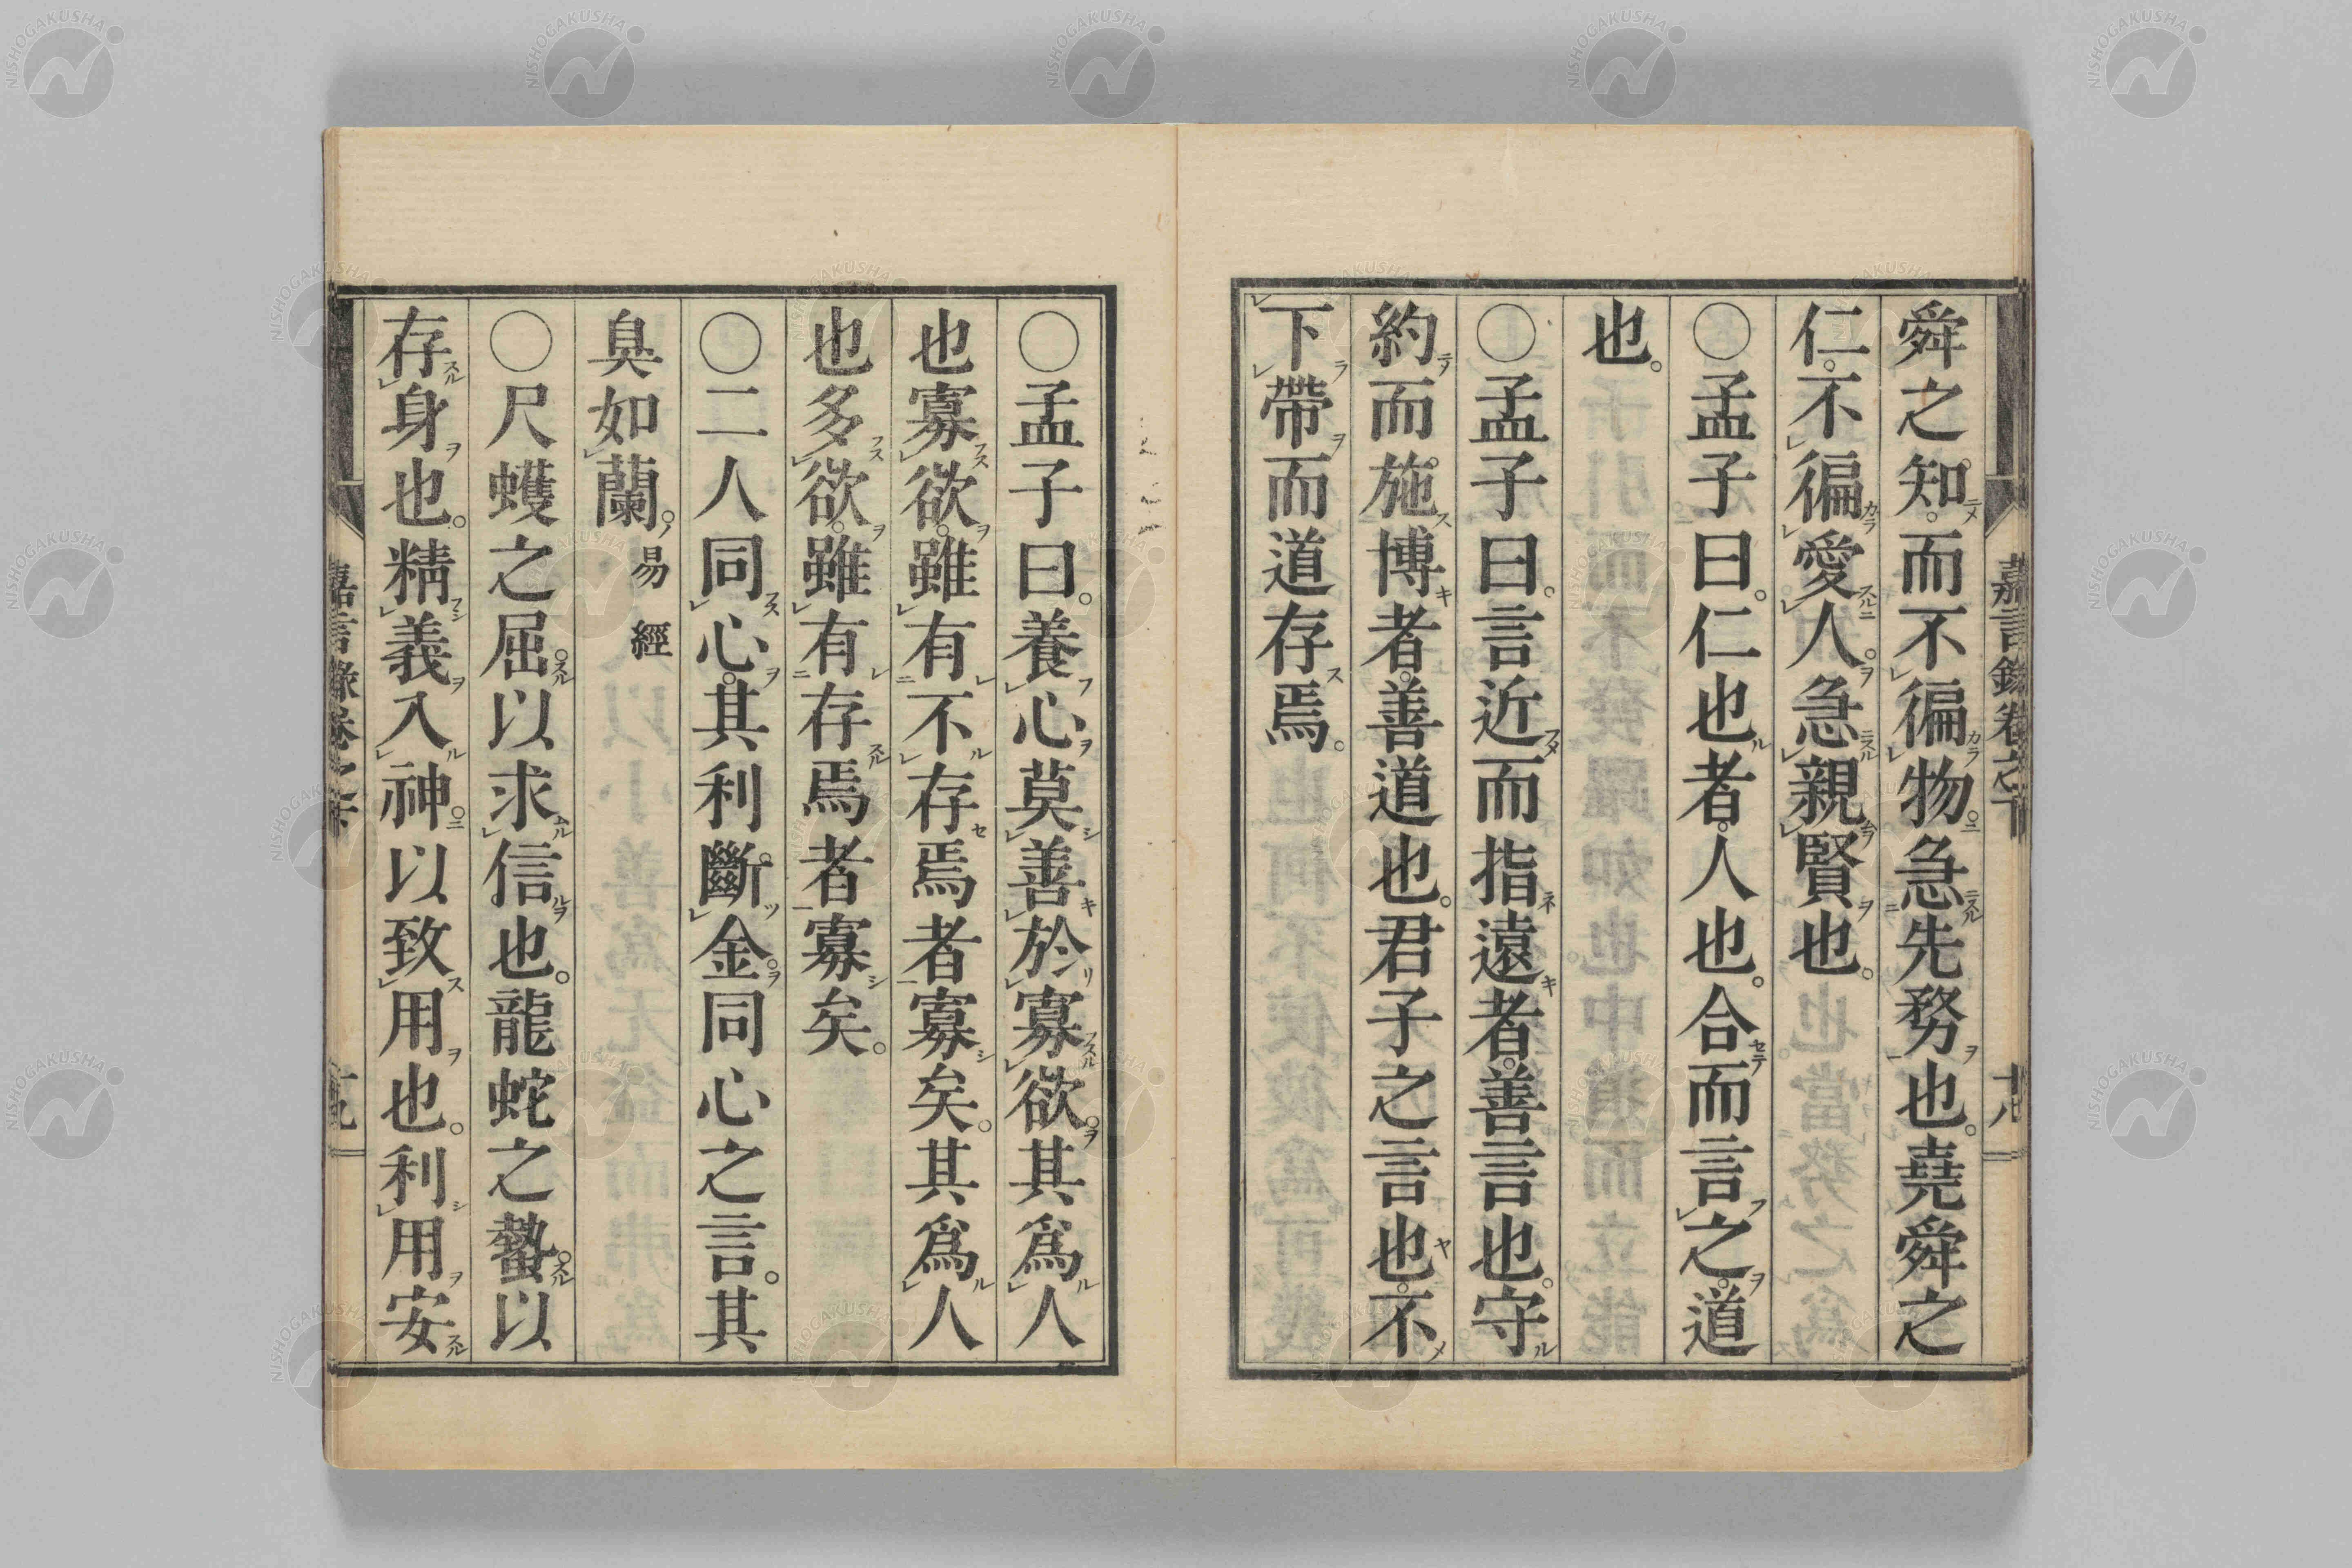 舜之知。而不徧物。急先務也。堯舜之
仁。不徧愛人。急親賢也。
〇孟子曰。仁也者。人也。合而言之。道
也。
〇孟子曰。言近而指遠者。善言也。守
約而施博者。善道也。君子之言也。不
下帶而道存焉。
嘉言錄卷之下
十八
〇孟子曰。養心莫善於寡欲。其爲人
也寡欲。雖有不存焉者寡矣。其爲人
也多欲。雖有存焉者寡矣。
〇二人同心。其利斷金。同心之言。其
臭如蘭。
易經
〇尺蠖之屈。以求信也。龍蛇之蟄。以
存身也。精義入神。以致用也。利用安
嘉言錄卷之下
NISHOGAKUSHA